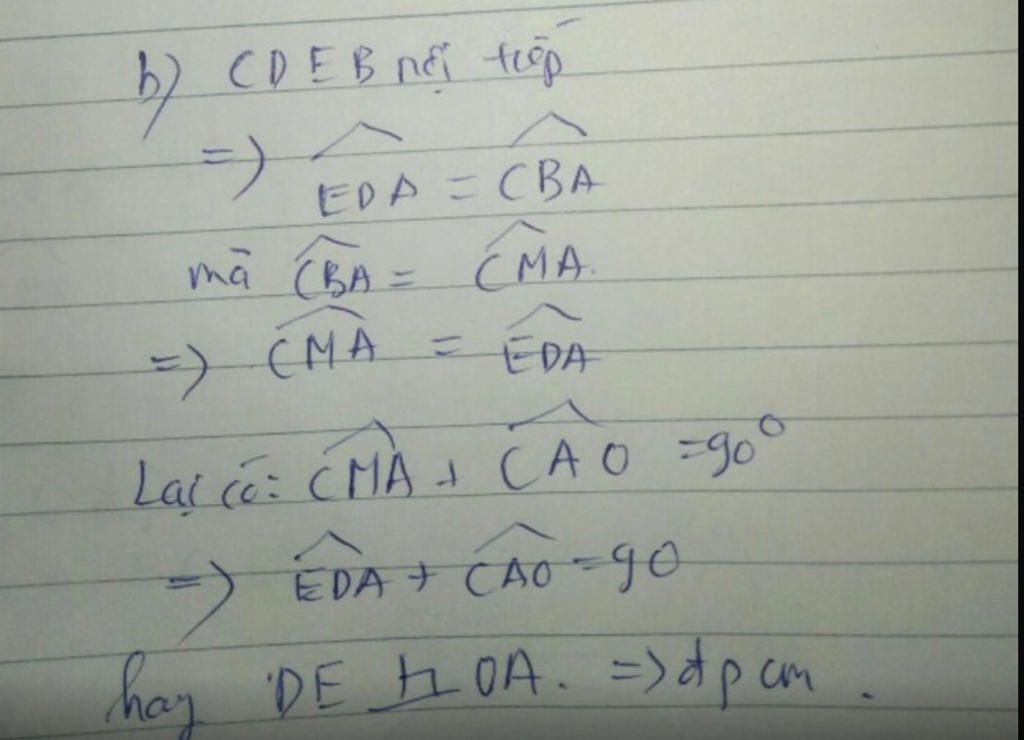 b) CDEB nội tiếp
=> \widehat{EDA} = \widehat{CBA}
mà \widehat{CBA} = \widehat{CMA}.
=> \widehat{CMA} = \widehat{EDA}
Lại có: \widehat{CMA} + \widehat{CAO} = 90°
=> \widehat{EDA} + \widehat{CAO} = 90
hay DE ⊥ OA. => đpcm.